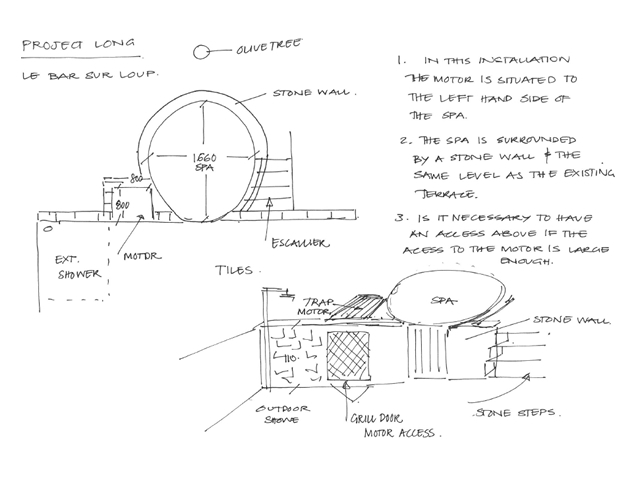 PROJECT LONG
LE BAR SUR LOUP.
OLIVETREE
STONE WALL.
1560
SPA
800
800
MOTOR
ESCALLIER
EXT.
SHOWER
TILES.
1. IN THIS INSTALLATION
THE MOTOR IS SITUATED TO
THE LEFT HAND SIDE OF
THE SPA.
2. THE SPA IS SURROUNDED
BY A STONE WALL & THE
SAME LEVEL AS THE EXISTING
TERRACE.
3. IS IT NECESSARY TO HAVE
AN ACCESS ABOVE IF THE
ACESS TO THE MOTOR IS LARGE
ENOUGH.
TRAP
MOTOR
SPA
STONE WALL.
110.
OUTDOOR
GRILL DOOR
MOTOR ACCESS.
STONE STEPS.